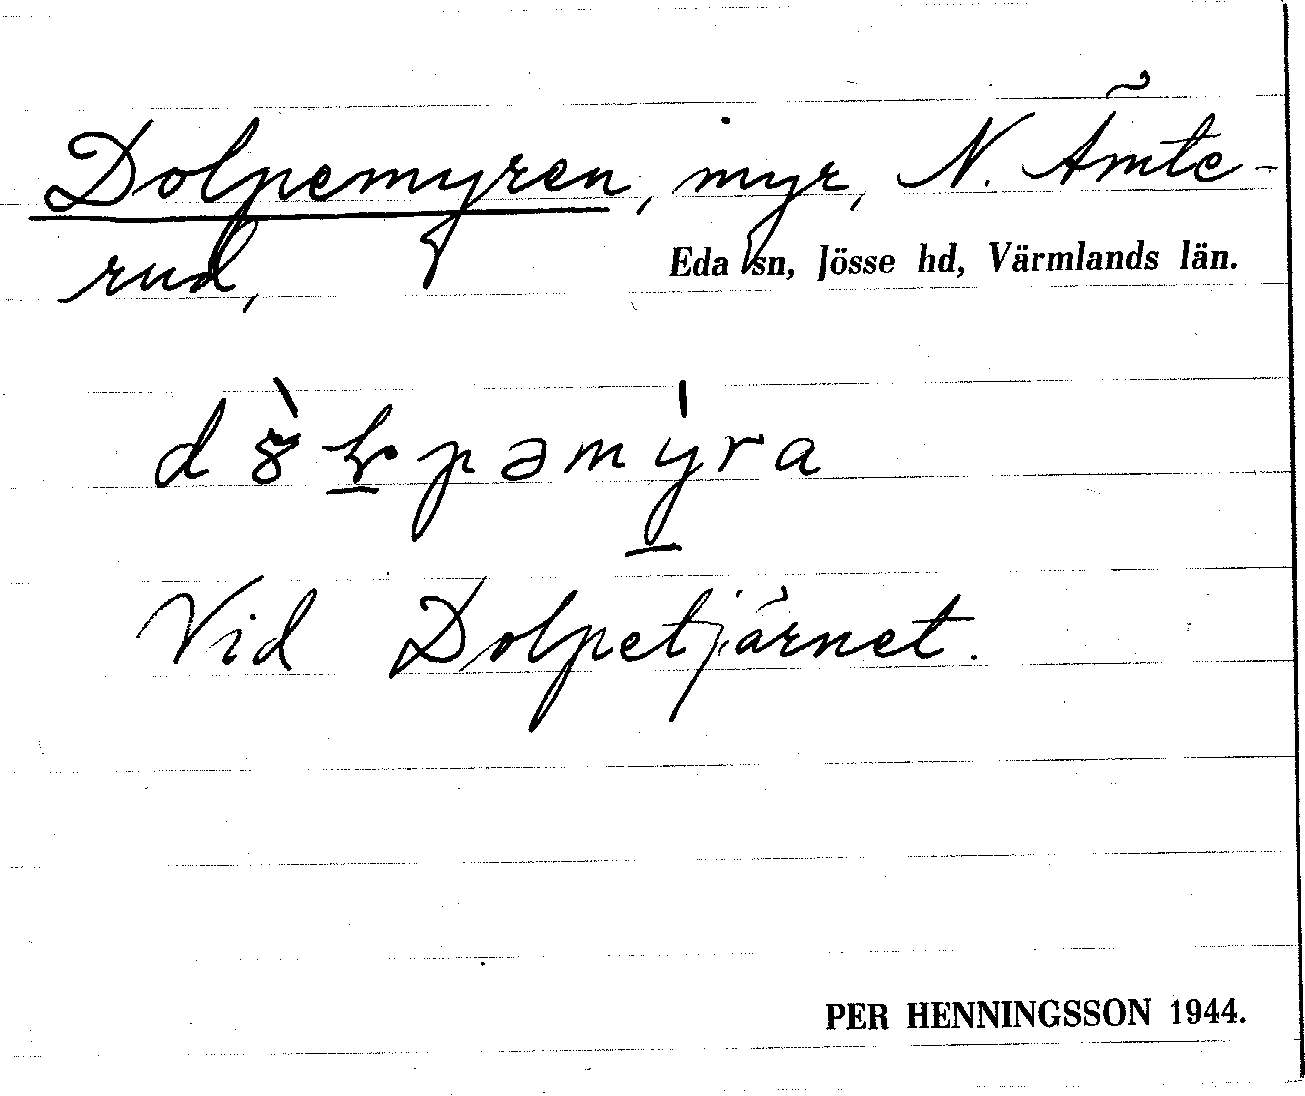 Dolpemyren, myr, N. Ämte-
rud,
Eda sn, Jösse hd, Värmlands län.
Vid Dolpetjärnet.
PER HENNINGSSON 1944.